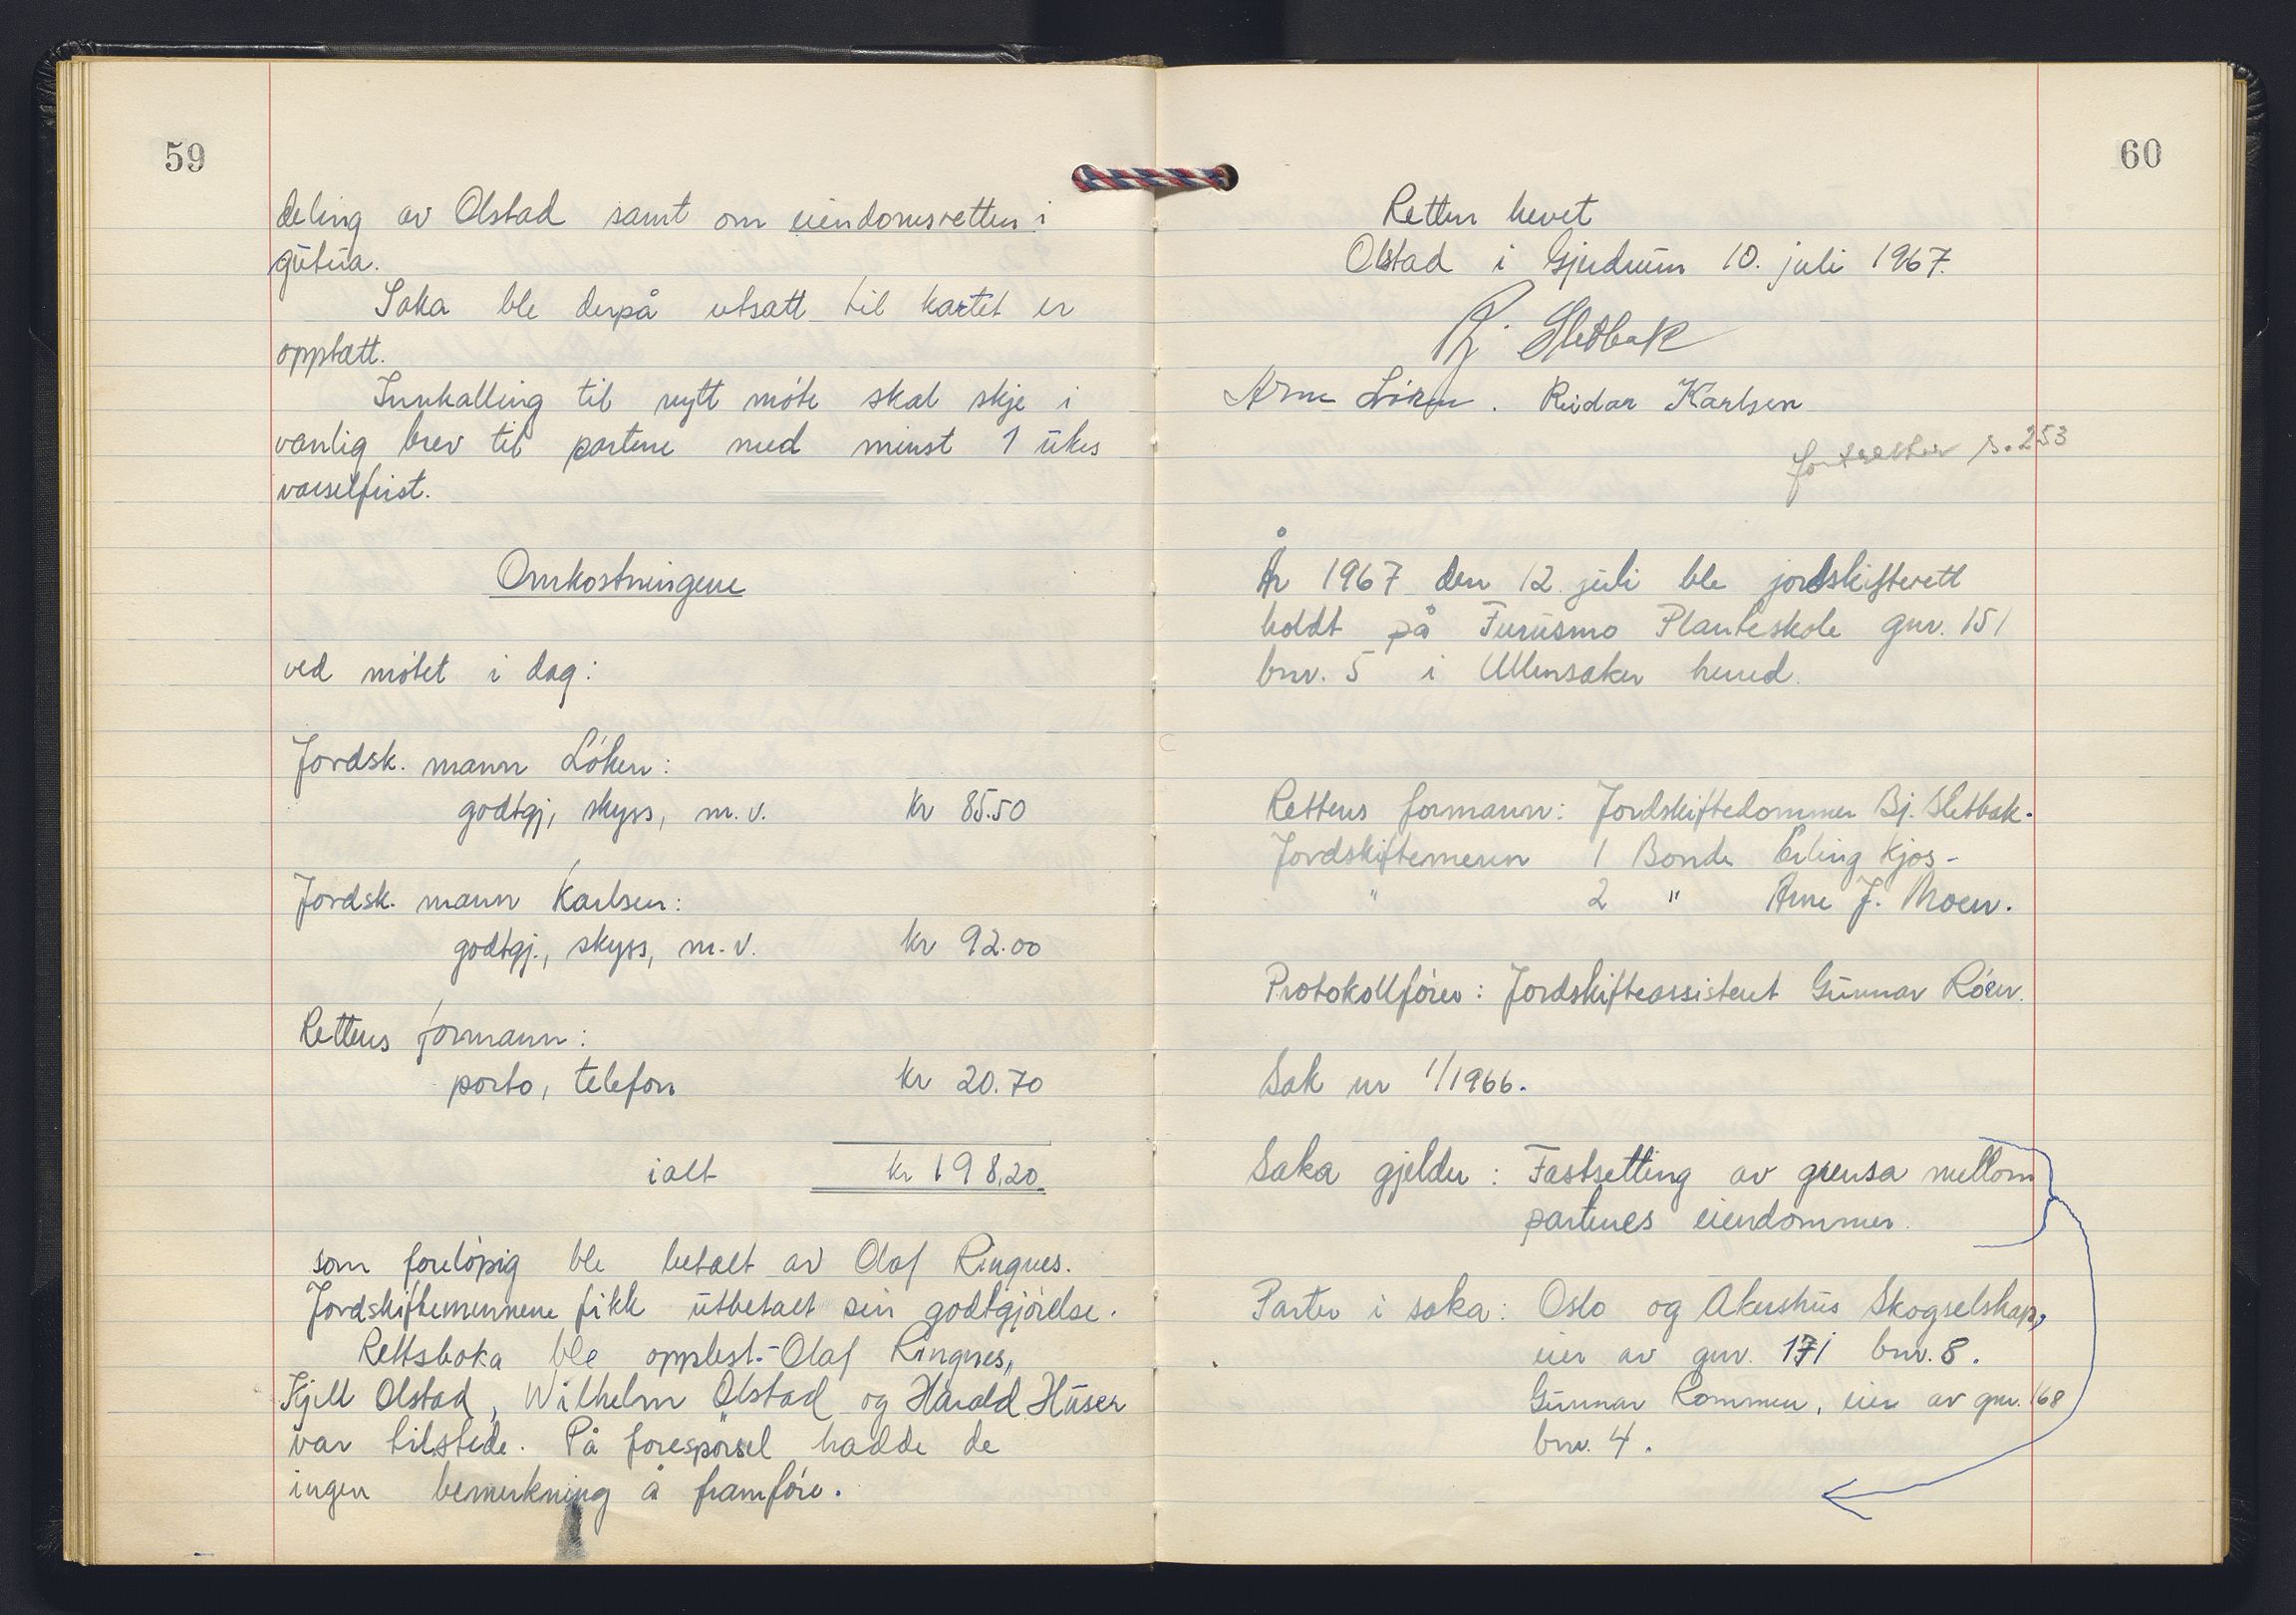 59
deling av Olstad samt om eiendomsretten i
gutua.
Saka ble derpå utsatt til kartet er
opptatt.
Innkalling til nytt møte skal skje i
vanlig brev til partene med minst 1 ukes
varselfrist.
Omkostningene
ved møtet i dag:
Jordsk. mann Löken:
godtgj, skyss, m.v. kr 85.50
Jordsk. mann Karlsen:
godtgj., skyss, m.v. kr 92.00
Rettens formann:
porto, telefon kr 20.70
ialt kr 198,20
som foreløpig ble betalt av Olaf Ringnes.
Jordskiftemennene fikk utbetalt sin godtgjørelse.
Rettsboka ble opplest. - Olaf Ringnes,
Kjell Olstad, Wilhelm Olstad og Harald Huser
var tilstede. På forespørsel hadde de
ingen bemerkning å framføre.
60
Retten hevet
Olstad i Gjerdrum 10. juli 1967.
Bj. Sletbak
Arne Löken. Reidar Karlsen
fortsetter s. 253
År 1967 den 12. juli ble jordskifterett
holdt på Furusmo Planteskole gnr. 151
bnr. 5 i Ullensaker herred.
Rettens formann: Jordskiftedommer Bj. Sletbak.
Jordskiftemenn 1 Bonde Erling Kjos -
" 2 " Arne J. Moen.
Protokollfører: Jordskifteassistent Gunnar Röen.
Sak nr 1/1966.
Saka gjelder: Fastsetting av grensa mellom
partenes eiendommer.
Parter i saka: Oslo og Akershus Skogselskap,
eier av gnr. 171 bnr. 8.
Gunnar Rommen, eier av gnr. 168
bnr. 4.